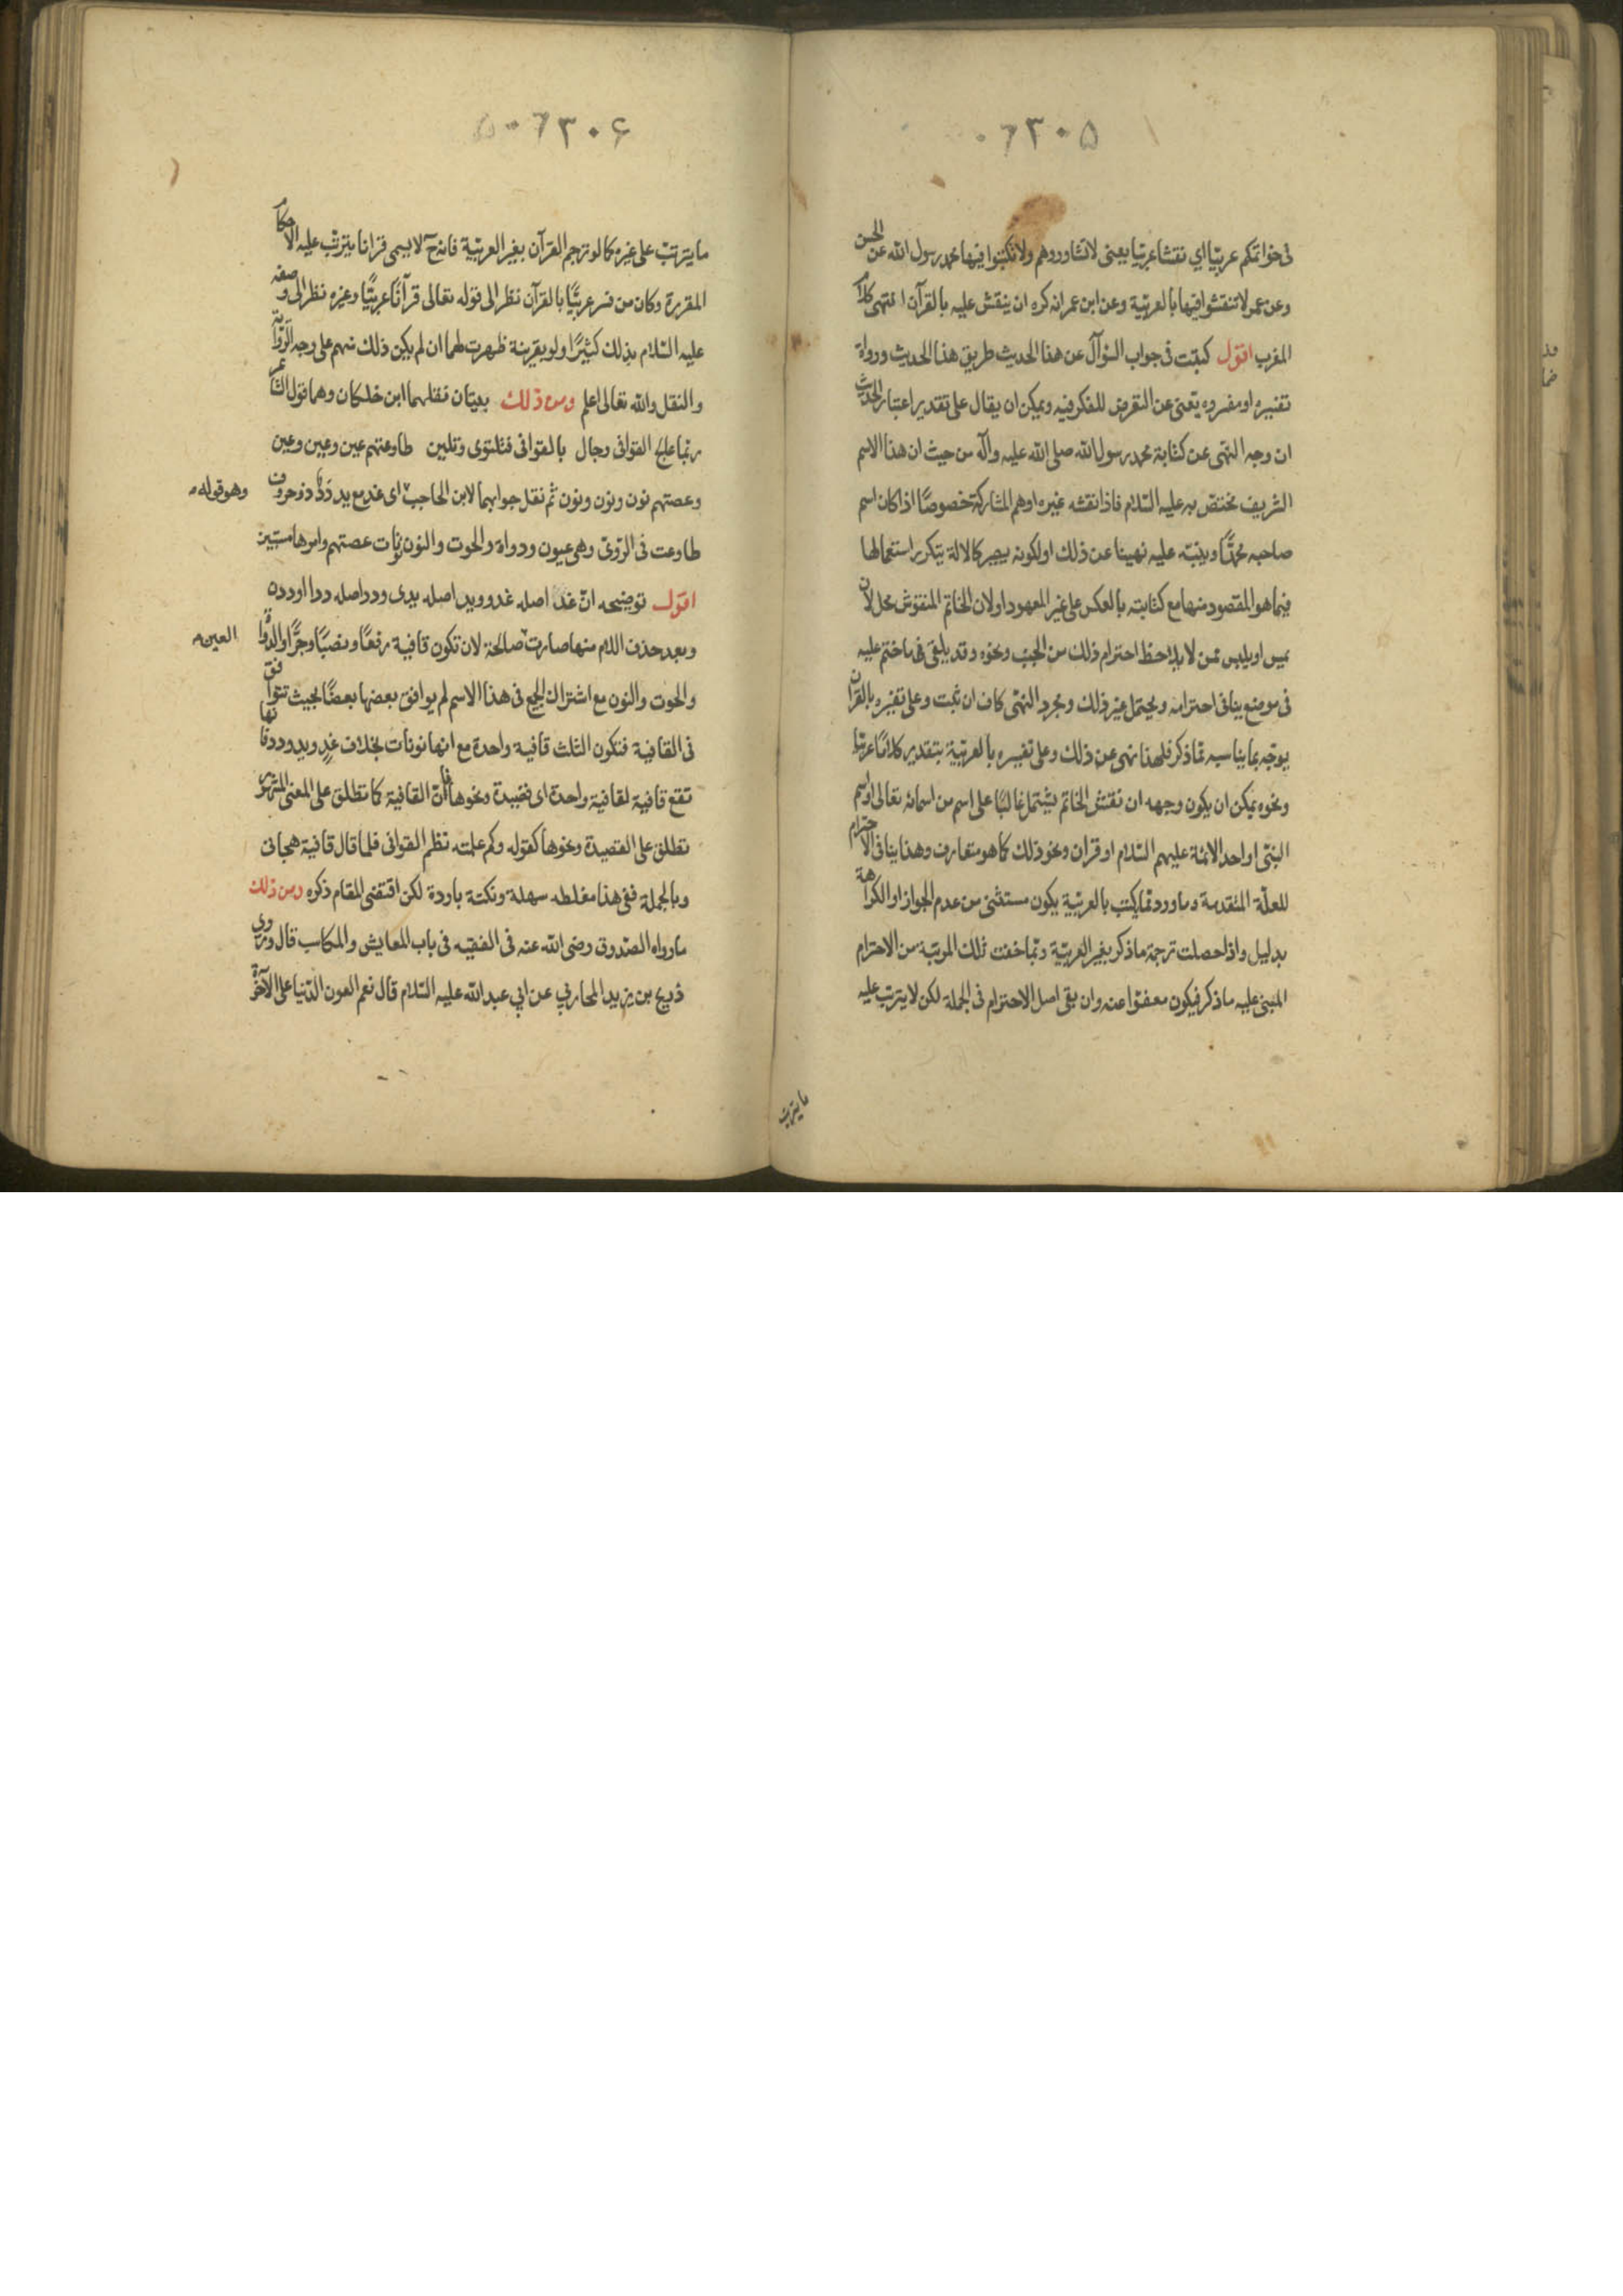 ٠٦٣٠٥
فى خواتمكم عربيّا اي نقشا عربيّا يعنى لاتشاوروهم ولا تكتبوا فيها محمد رسول الله عن الحسن
وعن عمر لاتنقشوا فيها بالعربيّة وعن ابن عمر انه كره ان ينقش عليه بالقرآن انتهى كلام
المغرب اقول كتبت فى جواب السّؤال عن هذا الحديث طريق هذا الحديث ورواة
تفسيره او مفسروه يعنى عن التعرض للفكر فيه ويمكن ان يقال على تقدير اعتبار الحديث
ان وجه النهى عن كتابة محمد رسول الله صلى الله عليه وآله من حيث ان هذا الاسم
الشريف مختصّ به عليه السّلام فاذا نقشه غيره اوهم المشاركة خصوصًا اذا كان اسم
صاحبه محمدًّا وينبّه عليه نهينا عن ذلك او لكونه يصير كالالة يتكرر استعمالها
فيما هو المقصود منها مع كتابته بالعكس على غير المعهود او لان الخاتم المنقوش محل لان
يمس او يلبس ممن لا يلاحظ احترام ذلك من الجنب ونحوه وقد يلقى فى ماختم عليه
فى موضع ينافى احترامه ويحتمل غير ذلك ومجرد النهى كاف ان ثبت وعلى تفسيره بالقران
يوجّه بما يناسبه مما ذكر فلهذا نهى عن ذلك وعلى تفسيره بالعربيّة بتقدير كلامًا عربيّا
ونحوه يمكن ان يكون وجهه ان نقش الخاتم يشتمل غالبًا على اسم من اسمائه تعالى او اسم
النبىّ او احد الائمة عليهم السّلام او قران ونحو ذلك كما هو متعارف وهذا ينافى الاحترام
للعلّة المتقدمة وما ورد مما يكتب بالعربيّة يكون مستثنى من عدم الجواز او الكراهة
بدليل واذا حصلت ترجمة ماذكر بغير العربيّة ربّما خفت تلك المرتبة من الاحترام
المبنى عليه ماذكر فيكون معفوّا عنه وان بقى اصل الاحترام فى الجملة لكن لا يترتب عليه
ما يترتب
٠٦٣٠۶
ما يترتب على غيره كما لو ترجم القرآن بغير العربيّة فانه ح لايسمى قرانا يترتب عليه الاحكام
المقررة وكان من فسر عربيًّا بالقرآن نظر الى قوله تعالى قرآنًا عربيًّا وغيره نظر الى وصفه
عليه السّلام بذلك كثيرًا ولو بقرينة ظهرت لهما ان لم يكن ذلك منهم على وجه الرّواية
والنقل والله تعالى اعلم ومن ذلك بيتان نقلهما ابن خلكان وهما قول الشاعر
ربّما عالج القوافى رجال بالقوافى فتلتوى وتلين طاوعتهم عين وعين وعين
وعصتهم نون ونون ونون ثم نقل جوابهما لابن الحاجب وهو قوله اى غد مع يد دد ذو حروف
طاوعت فى الروىّ وهى عيون ودواة والحوت والنون نونات عصتهم وامرها مستبين
اقول توضيحه انّ غد اصله غدو ويد اصله يدى ودد اصله ددا او ددن
وبعد حذف اللام منها صارت العين صالحة لان تكون قافية رفعًا ونصبًا وجرًّا والدّواة
والحوت والنون مع اشتراك الجميع فى هذا الاسم لم يوافق بعضها بعضًا بحيث تتوافق
فى القافية فتكون الثلث قافية واحدة مع انها نونات بخلاف غدٍ ويد ودد فانها
تقع قافية لقافية واحدة اى قصيدة ونحوها فان القافية كما تطلق على المعنى المشهور
تطلق على القصيدة ونحوها كقوله وكم علمته نظم القوافى فلما قال قافية هجانى
وبالجملة ففى هذا مغلطه سهلة ونكتة باردة لكن اقتضى المقام ذكره ومن ذلك
مارواه الصّدوق رضى الله عنه فى الفقيه فى باب المعايش والمكاسب قال وروى
ذريح بن يزيد المحاربي عن ابي عبد الله عليه السّلام قال نعم العون الدّنيا على الآخرة